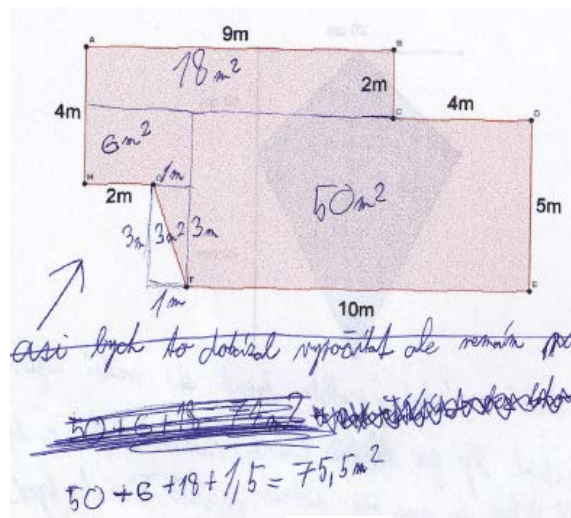 9m
A
B
18 m²
2m
4m
C
4m
D
6 m²
H
1m
2m
50m²
5m
3m
3m²
3m
F
E
1m
10m
asi bych to dokázal vypočítat ale nemám
50+6+18=74m²
50+6+18+1,5=75,5m²